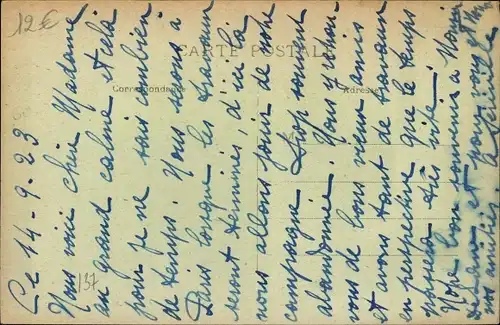 12€
CARTE POSTALE
Correspondance
Adresse
137
Ce 14-9-23
Nous voici chère Madame
au grand calme et cela
pour je ne sais combien
de temps. Nous serons à
Paris lorsque les travaux
seront terminés, d'ici là
nous allons jouir de notre
campagne trop souvent
abandonnée. Nous y retrou-
vons de bons vieux amis
et avons tant de travaux
en perspective que le temps
passera très vite.
Notre bon souvenir à Mons
et pour vous
nos amitiés